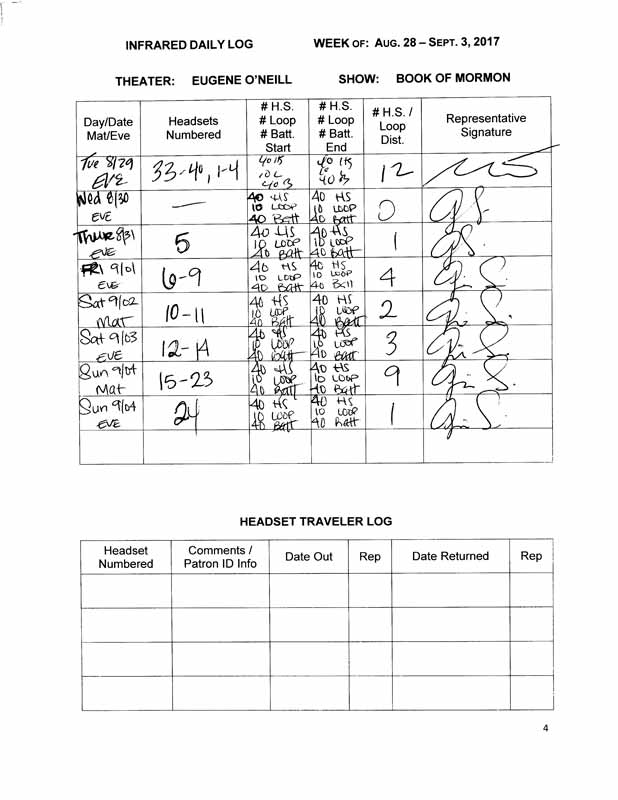 INFRARED DAILY LOG WEEK OF: AUG. 28 – SEPT. 3, 2017
THEATER: EUGENE O'NEILL SHOW: BOOK OF MORMON
Day/Date Mat/Eve Headsets Numbered # H.S. # Loop # Batt. Start # H.S. # Loop # Batt. End # H.S. / Loop Dist. Representative Signature
Tue 8/29 EVE 33-40, 1-4 40 10 L 40 B 40 10 40 B 12
Wed 8/30 EVE — 40 HS 10 LOOP 40 Batt 40 HS 10 LOOP 40 Batt 0
Thur 8/31 EVE 5 40 HS 10 LOOP 40 Batt 40 HS 10 LOOP 40 Batt 1
FRI 9/01 EVE 6-9 40 HS 10 LOOP 40 Batt 40 HS 10 LOOP 40 Batt 4
Sat 9/02 Mat 10-11 40 HS 10 LOOP 40 Batt 40 HS 10 LOOP 40 Batt 2
Sat 9/03 EVE 12-14 40 HS 10 LOOP 40 Batt 40 HS 10 LOOP 40 Batt 3
Sun 9/04 Mat 15-23 40 HS 10 LOOP 40 Batt 40 HS 10 LOOP 40 Batt 9
Sun 9/04 EVE 24 40 HS 10 LOOP 40 Batt 40 HS 10 LOOP 40 Batt 1
HEADSET TRAVELER LOG
Headset Numbered Comments / Patron ID Info Date Out Rep Date Returned Rep
4